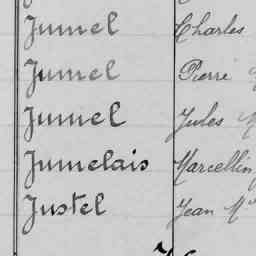 Jumel Charles
Jumel Pierre
Jumel Jules
Jumelais Marcellin
Justel Jean